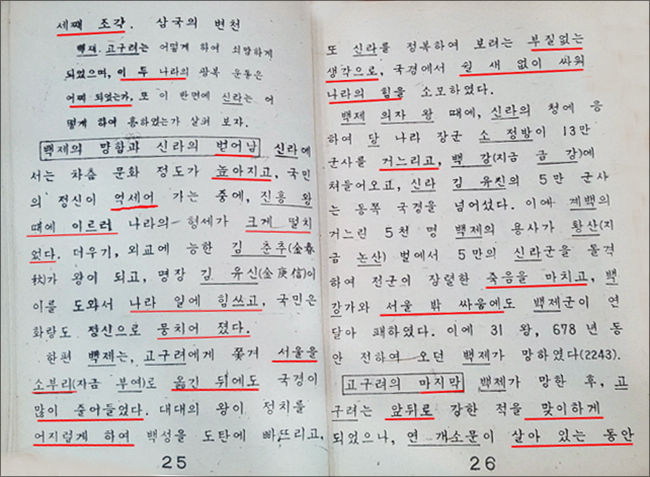 세째 조각. 삼국의 변천
백제. 고구려는 어떻게 하여 쇠망하게
되었으며, 이 두 나라의 광복 운동은
어찌 되었는가, 또 이 반면에 신라는 어
떻게 하여 흥하였는가 살펴 보자.
백제의 망함과 신라의 벋어남 신라에
서는 차츰 문화 정도가 높아지고, 국민
의 정신이 억세어 가는 중에, 진흥 왕
때에 이르러 나라의 형세가 크게 떨치
었다. 더우기, 외교에 능한 김 춘추(金春
秋)가 왕이 되고, 명장 김 유신(金庾信)이
이를 도와서 나라 일에 힘쓰고, 국민은
화랑도 정신으로 뭉치어 졌다.
한편 백제는, 고구려에게 쫓겨 서울을
소부리(지금 부여)로 옮긴 뒤에도 국경이
많이 줄어들었다. 대대의 왕이 정치를
어지럽게 하여 백성을 도탄에 빠뜨리고,
25
또 신라를 정복하여 보려는 부질없는
생각으로, 국경에서 쉴 새 없이 싸워
나라의 힘을 소모하였다.
백제 의자 왕 때에, 신라의 청에 응
하여 당 나라 장군 소 정방이 13만
군사를 거느리고, 백 강(지금 금 강)에
처들어오고, 신라 김 유신의 5만 군사
는 동쪽 국경을 넘어섰다. 이에 계백의
거느린 5천 명 백제의 용사가 황산(지
금 논산) 벌에서 5만의 신라군을 돌격
하여 전군이 장렬한 죽음을 마치고, 백
강가와 서울 밖 싸움에도 백제군이 연
달아 패하였다. 이에 31 왕, 678 년 동
안 전하여 오던 백제가 망하였다(2243).
고구려의 마지막 백제가 망한 후, 고
구려는 앞뒤로 강한 적을 맞이하게
되었으나, 연 개소문이 살아 있는 동안
26